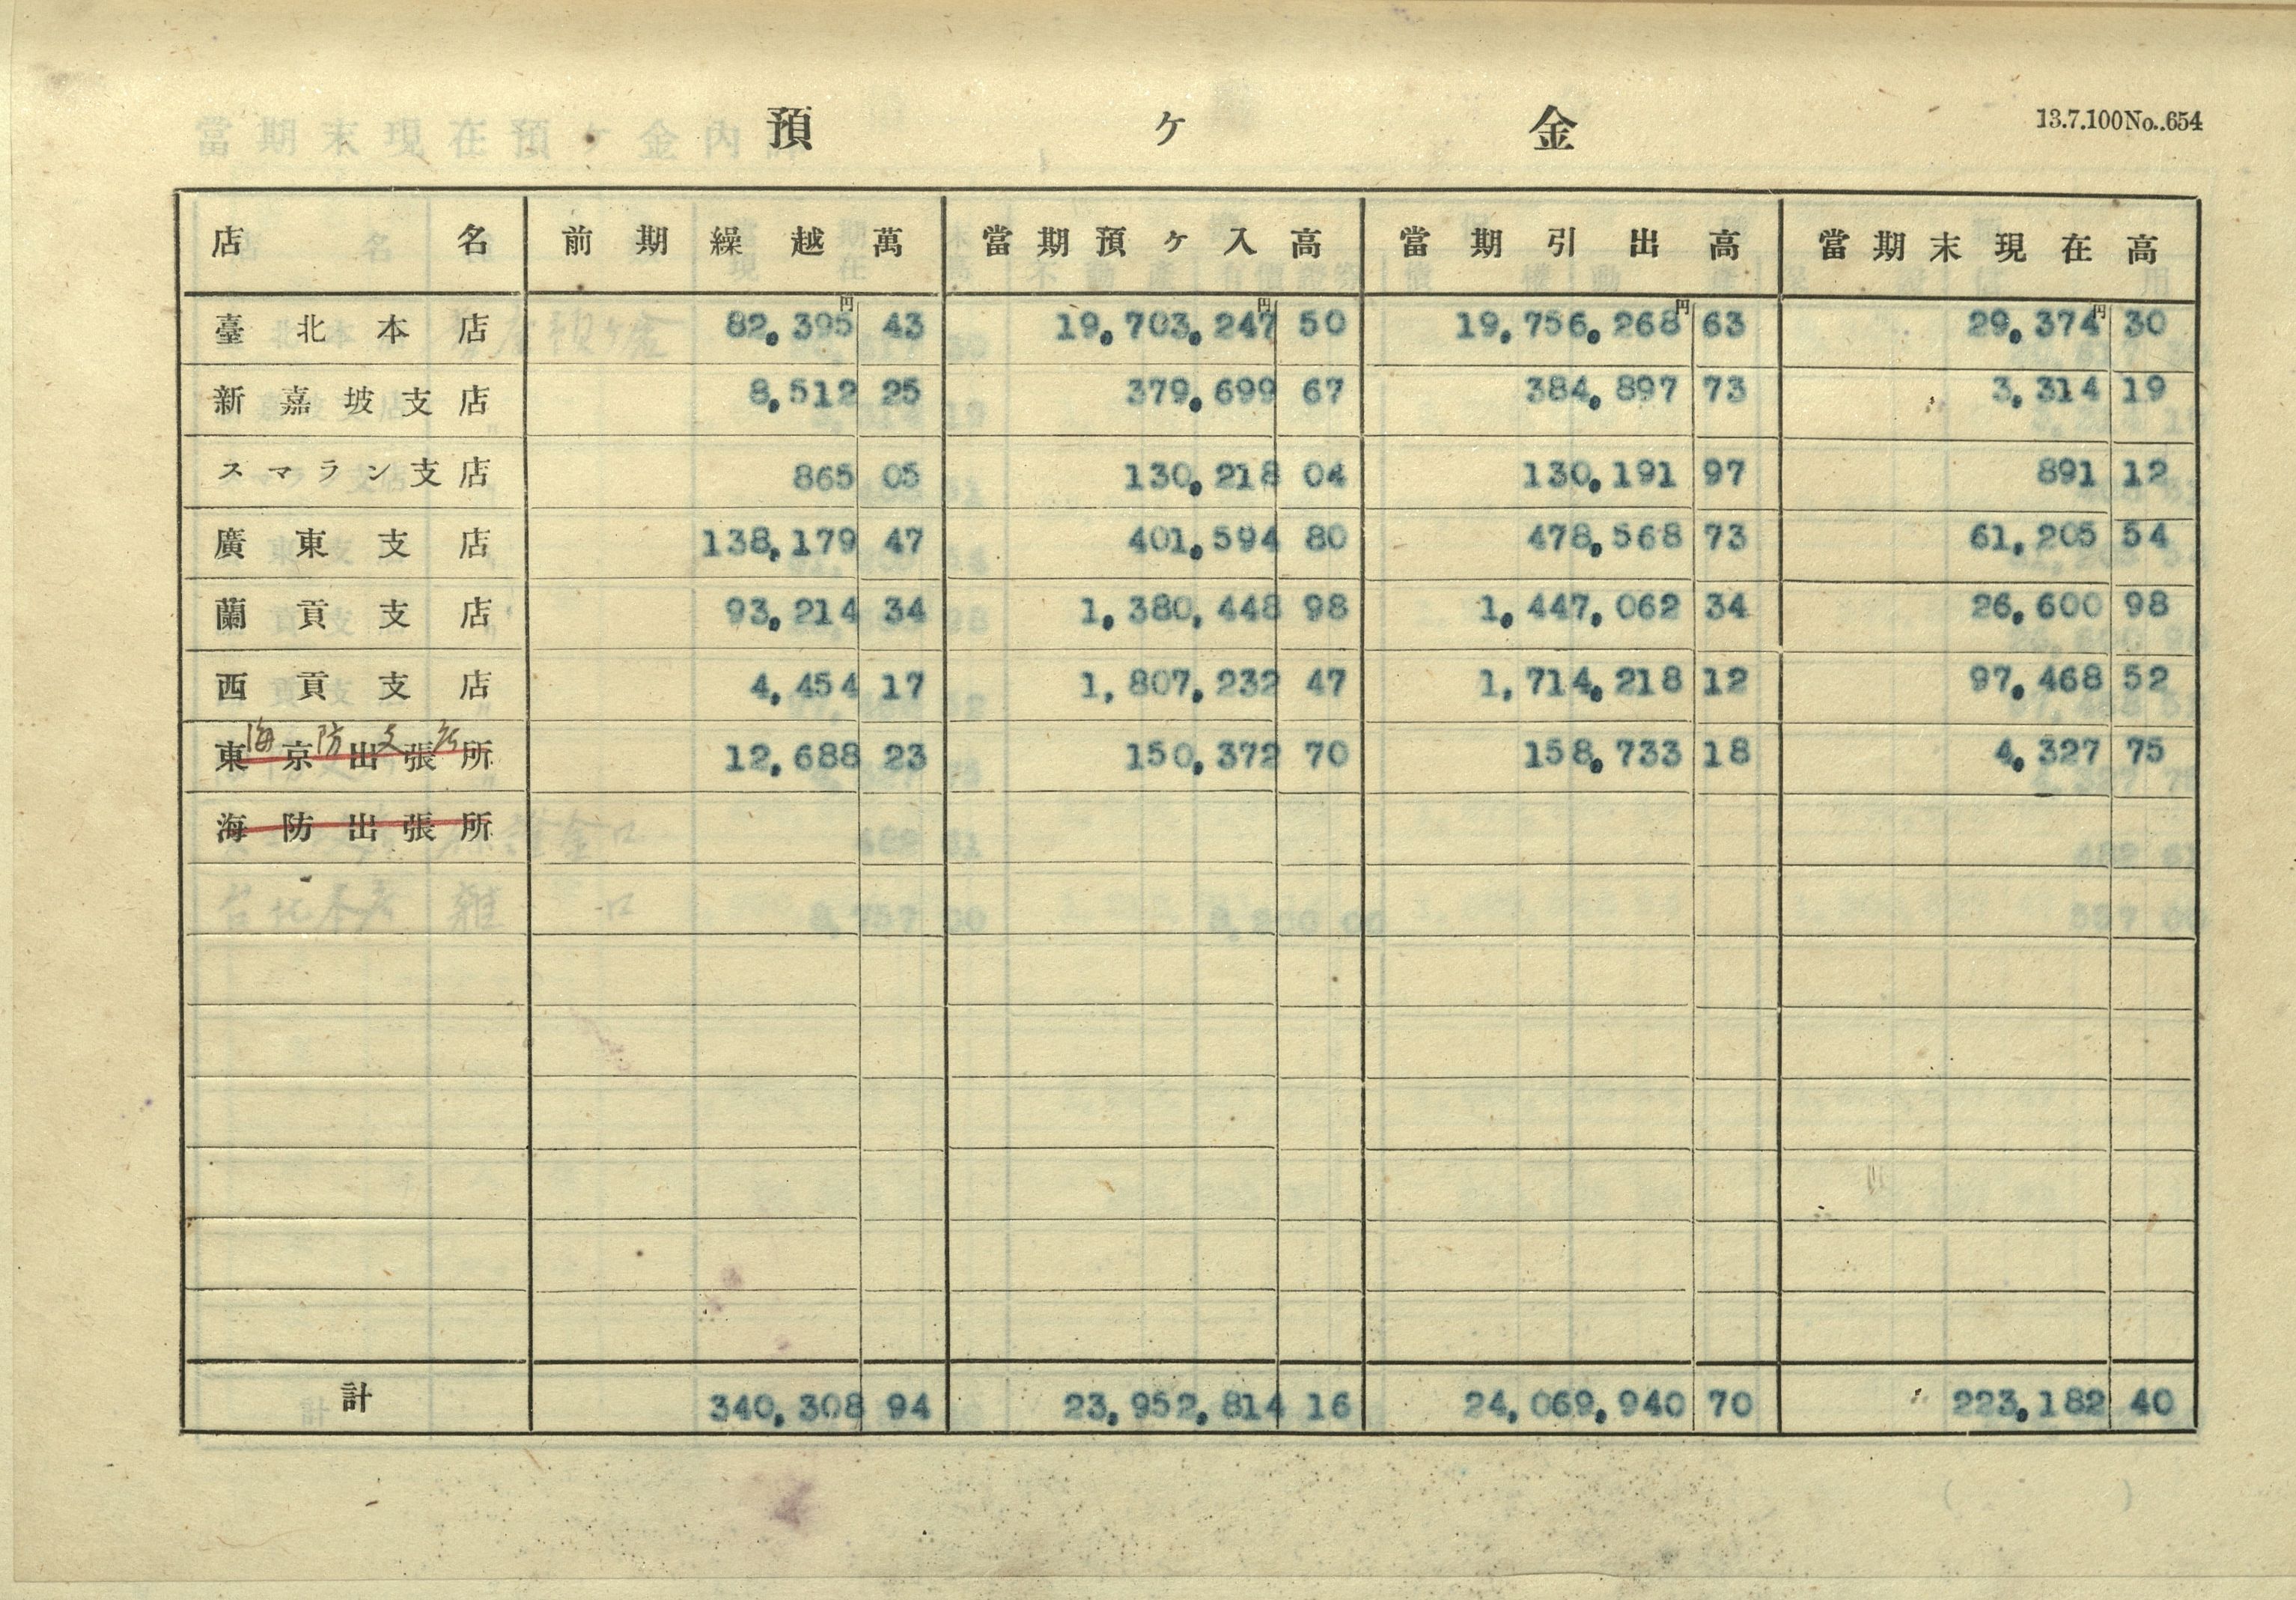 預ヶ金
13.7.100No..654
店名 前期繰越萬 當期預ヶ入高 當期引出高 當期末現在高
臺北本店 82,395円 43 19,703,247円 50 19,756,268円 63 29,374円 30
新嘉坡支店 8,512 25 379,699 67 384,897 73 3,314 19
スマラン支店 865 05 130,218 04 130,191 97 891 12
廣東支店 138,179 47 401,594 80 478,568 73 61,205 54
蘭貢支店 93,214 34 1,380,448 98 1,447,062 34 26,600 98
西貢支店 4,454 17 1,807,232 47 1,714,218 12 97,468 52
海防支店
東京出張所 12,688 23 150,372 70 158,733 18 4,327 75
海防出張所
計 340,308 94 23,952,814 16 24,069,940 70 223,182 40